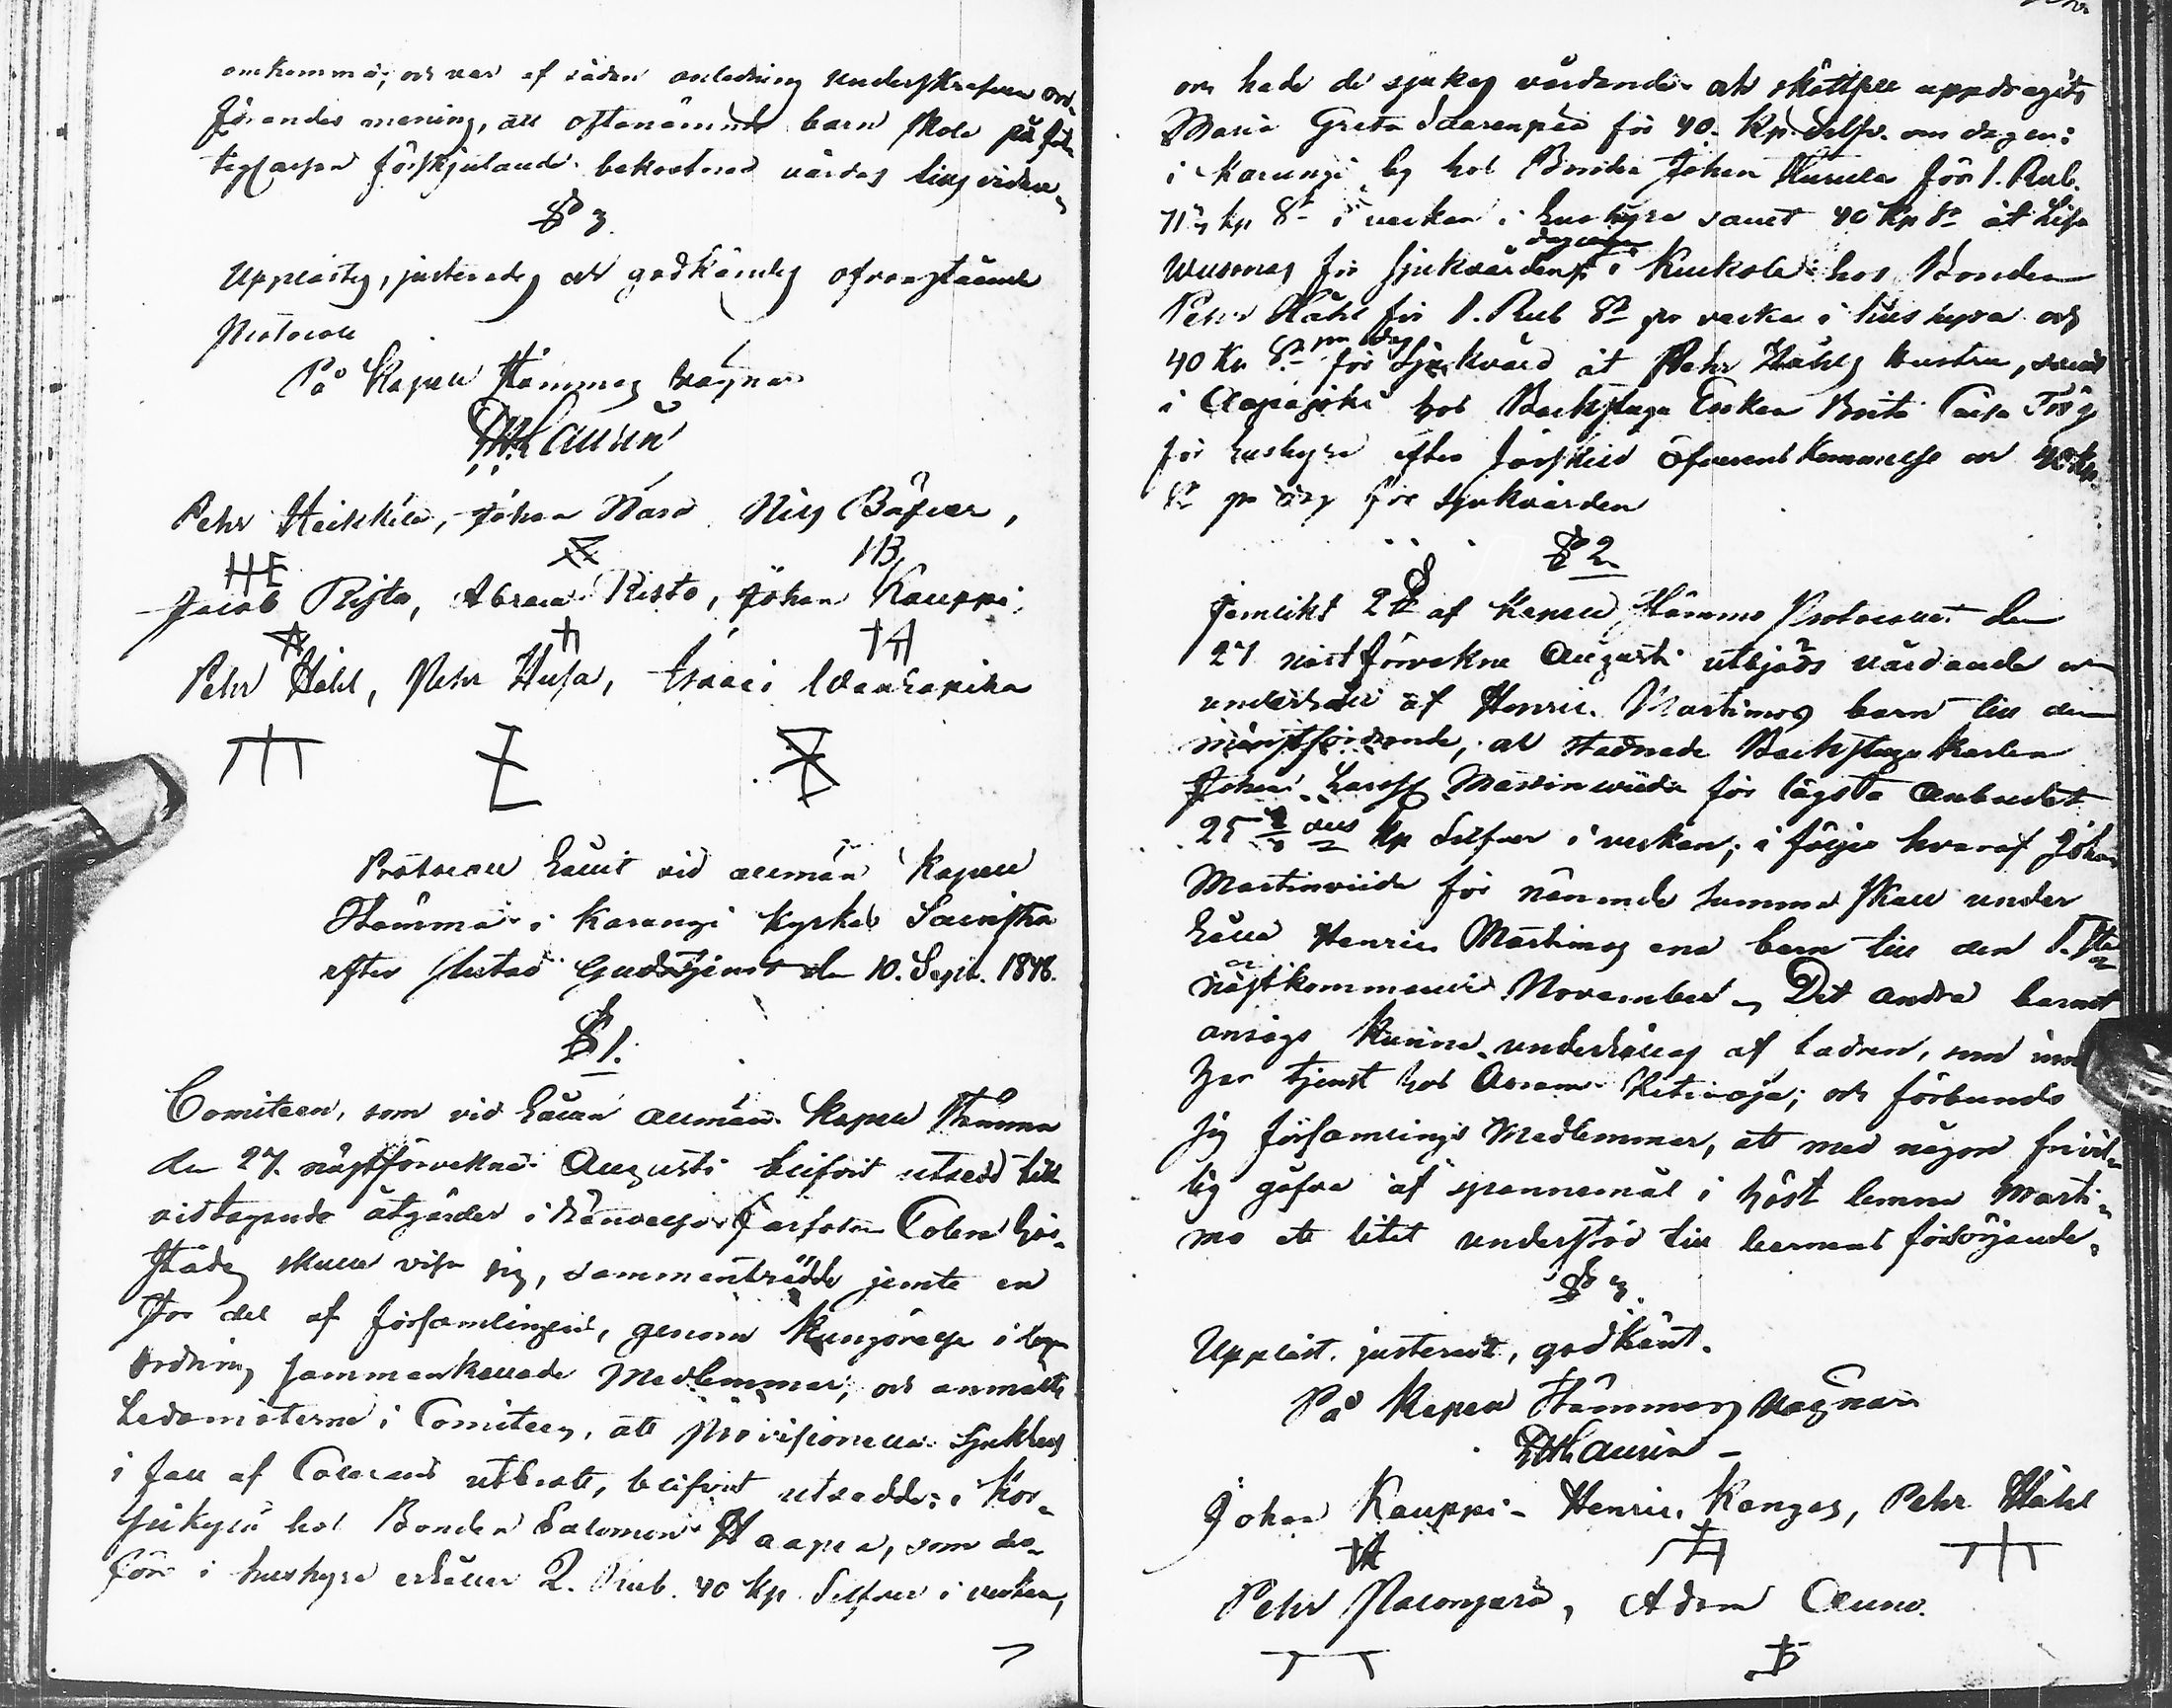 omkomma; och var af sådan anledning underskrefven ord-
förandes mening, att oftanämnde barn skola på fat-
tigcassan förskjutande bekostnad vårdas tills vidare
§ 3.
Upplästes, justerades och godkändes ofvanstående
Protocoll
På Kapell Stämmas vägnar
Laurin
Pehr Heikkilä, Johan Nara Nils Bäfver,
HE IB
Jacob Risto, Abram Risto, Johan Kauppi
Pehr Ståhl, Pehr Husa, Isaac
Protocoll hållit vid allmän Kapell
Stämma i Karungi Kyrkas Sacristia
efter slutad Gudstjenst den 10. Sept. 1848.
§ 1.
Comiteen, som vid hållen allmän Kapell Stämma
den 27. nästförvekne Augusti blifvit utsedd till
vidtagande åtgärder i händelse farsoten Colera här-
städes skulle visa sig, sammanträdde jemte en
stor del af församlingens, genom kungörelse i laga
ordning sammankallade Medlemmar; och anmälte
Ledamöterne i Comiteen, att provisionella Sjukhus
i fall af Colerans utbrott, blifvit utsedde: i Kor-
pikylä hos Bonden Salomon Haapa, som der-
före i hushyra erhåller 2. Rub. 40 kp. Silfver i veckan,
och hade de sjukas vårdande och skötsell uppdragits
Maria Greta Saarenpää för 40. Kp. Silfv. om dagen:
i Karungi by hos Bonden Johan för 1. Rub.
71 3/7 kp Sr i veckan i hushyra samt 40 kp Sr åt Lisa
för sjukvården i Kuckola hos Bonden
Pehr Ståhl för 1. Rub Sr pr vecka i hushyra och
40 Kp Sr pr dag för Sjukvård åt Pehr Ståhls hustru, samt
i Aapajoki hos Backstugu Enkan Brita Caisa
för hushyra efter särskild öfverenskommelse och 40 kp.
Sr pr dag för sjukvården
§ 2
Jemlikt 2 § af Kapell Stämmo Protocollet den
27 nästförvekne Augusti utbjöds vårdande och
underhåll af Henric Martimos barn till den
minstfordrande, och stadnade Backstugu Karlen
Johan Larsson Martinviida för lägsta anbudet
25 kp Silfver i veckan; i följe hvaraf Johan
Martinviida för nämnde summa skall under
hålla Henric Martimos ena barn till den 1.sta
nästkommande November. Det andra barnet
ansågs kunna underhållas af fadren, som nu
har tjenst hos Abram; och förbundo
sig församlings Medlemmar, att med någon frivil-
lig gåfva af spannemål i höst lemna Marti-
mo ett litet understöd till barnens försörjande.
§ 3.
Uppläst, justerat, godkänt.
På Kapell Stämmas vägnar
Laurin
Johan Kauppi - Henric Kangas, Pehr Ståhl
Pehr Palovaara, Adam Aunu.